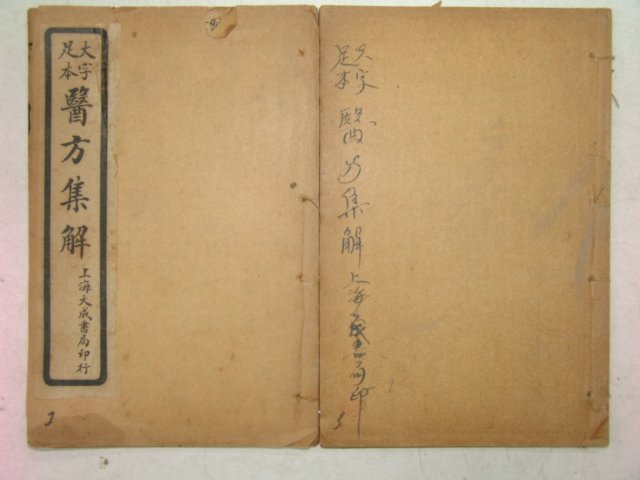 大字
足本
醫方集解
上海大成書局印行
2
大字
足本
醫方集解上海大成書局印
3